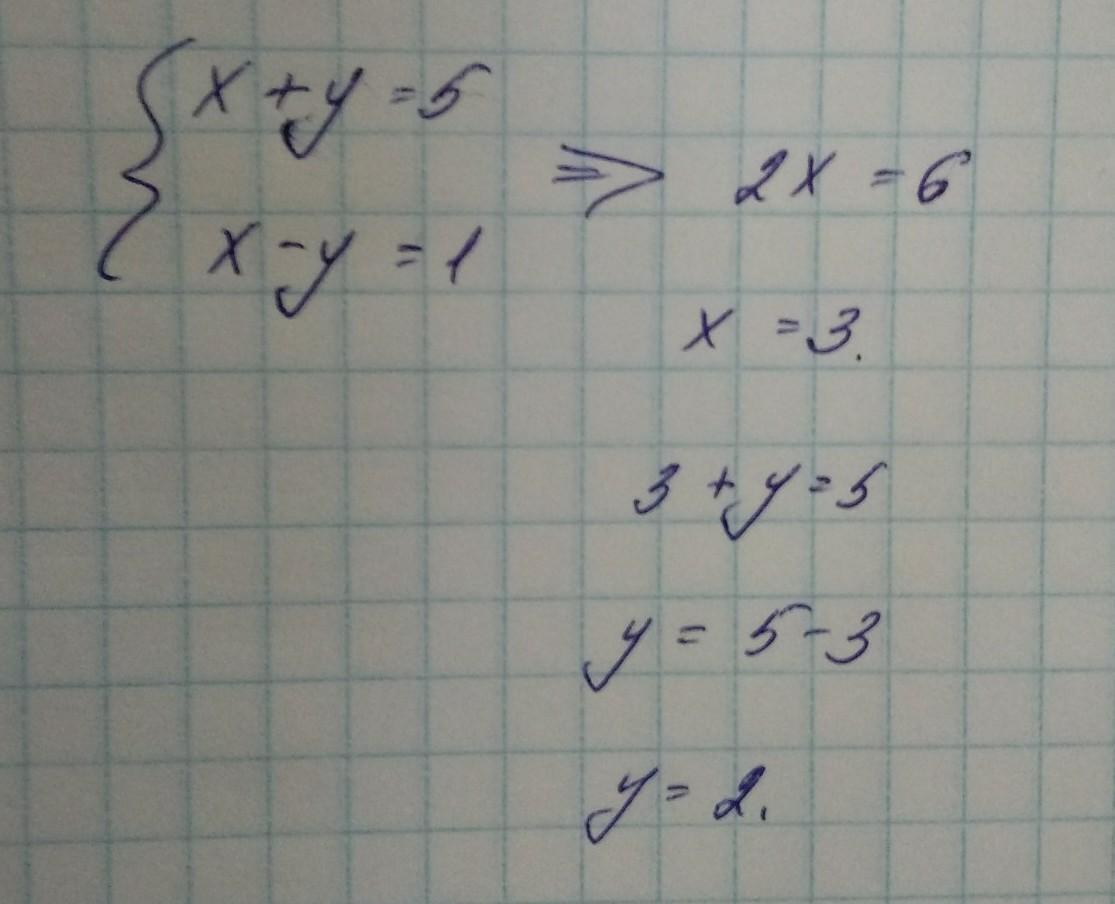 { x + y = 5
x - y = 1
⇒ 2x = 6
x = 3.
3 + y = 5
y = 5 - 3
y = 2.